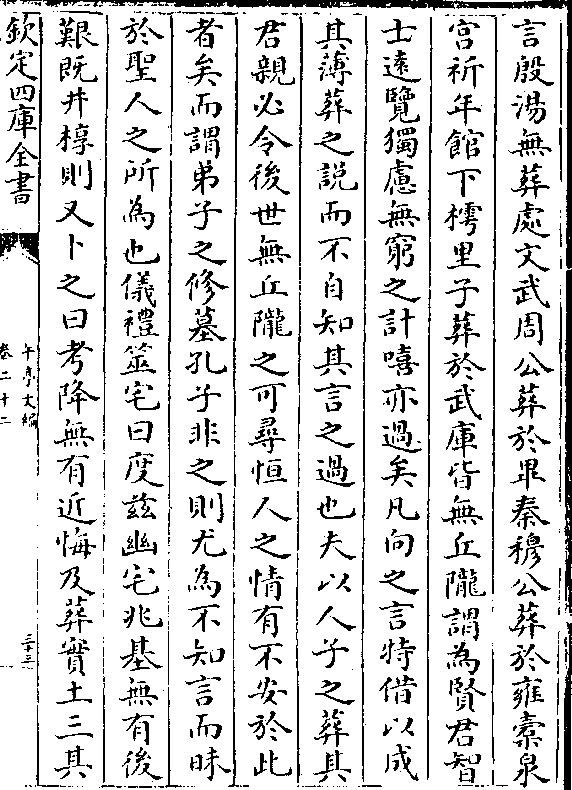 言殷湯無葬處文武周公葬於畢秦穆公葬於雍槖泉
宫祈年館下樗里子葬於武庫皆無丘隴謂為賢君智
士逺覽獨慮無窮之計嘻亦過矣凡向之言特借以成
其薄葬之説而不自知其言之過也夫以人子之葬其
君親必令後世無丘隴之可尋恒人之情有不安於此
者矣而謂弟子之修墓孔子非之則尤為不知言而昧
於聖人之所為也儀禮筮宅曰度兹幽宅兆基無有後
艱既井椁則又卜之曰考降無有近悔及葬實土三其
欽定四庫全書
午亭文編
卷二十二
三十三